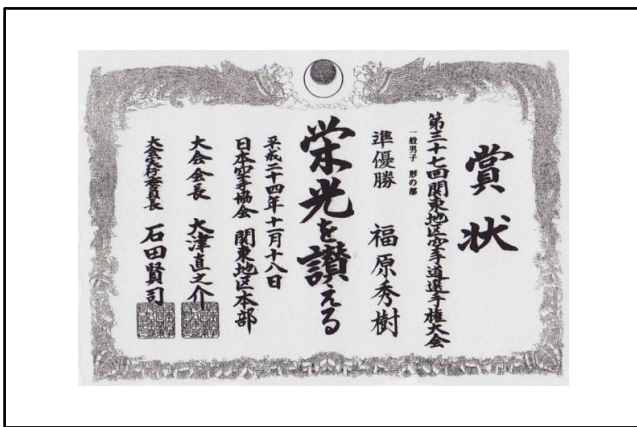 賞状
第三十七回関東地区空手道選手権大会
一般男子 形の部
準優勝 福原秀樹
栄光を讃える
平成二十四年十一月十八日
日本空手協会 関東地区本部
大会会長 大津直之介
大会実行委員長 石田賢司